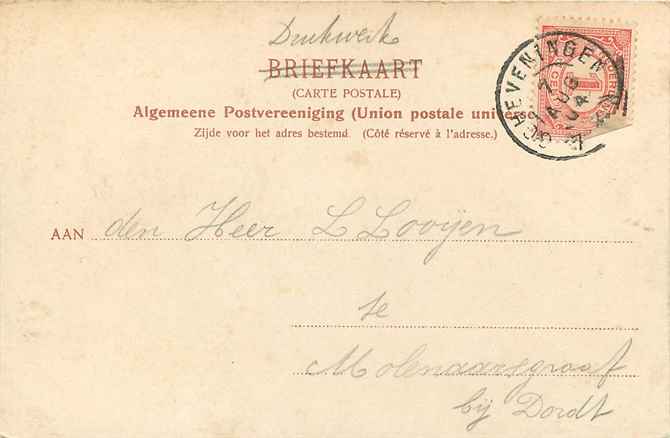 Drukwerk
BRIEFKAART
(CARTE POSTALE)
Algemeene Postvereeniging (Union postale universe
Zijde voor het adres bestemd. (Côté réservé à l'adresse.)
SCHEVENINGEN
AUG
1
CE
AAN den Heer L Looijen
te
Molenaarsgraaf
bij Dordt